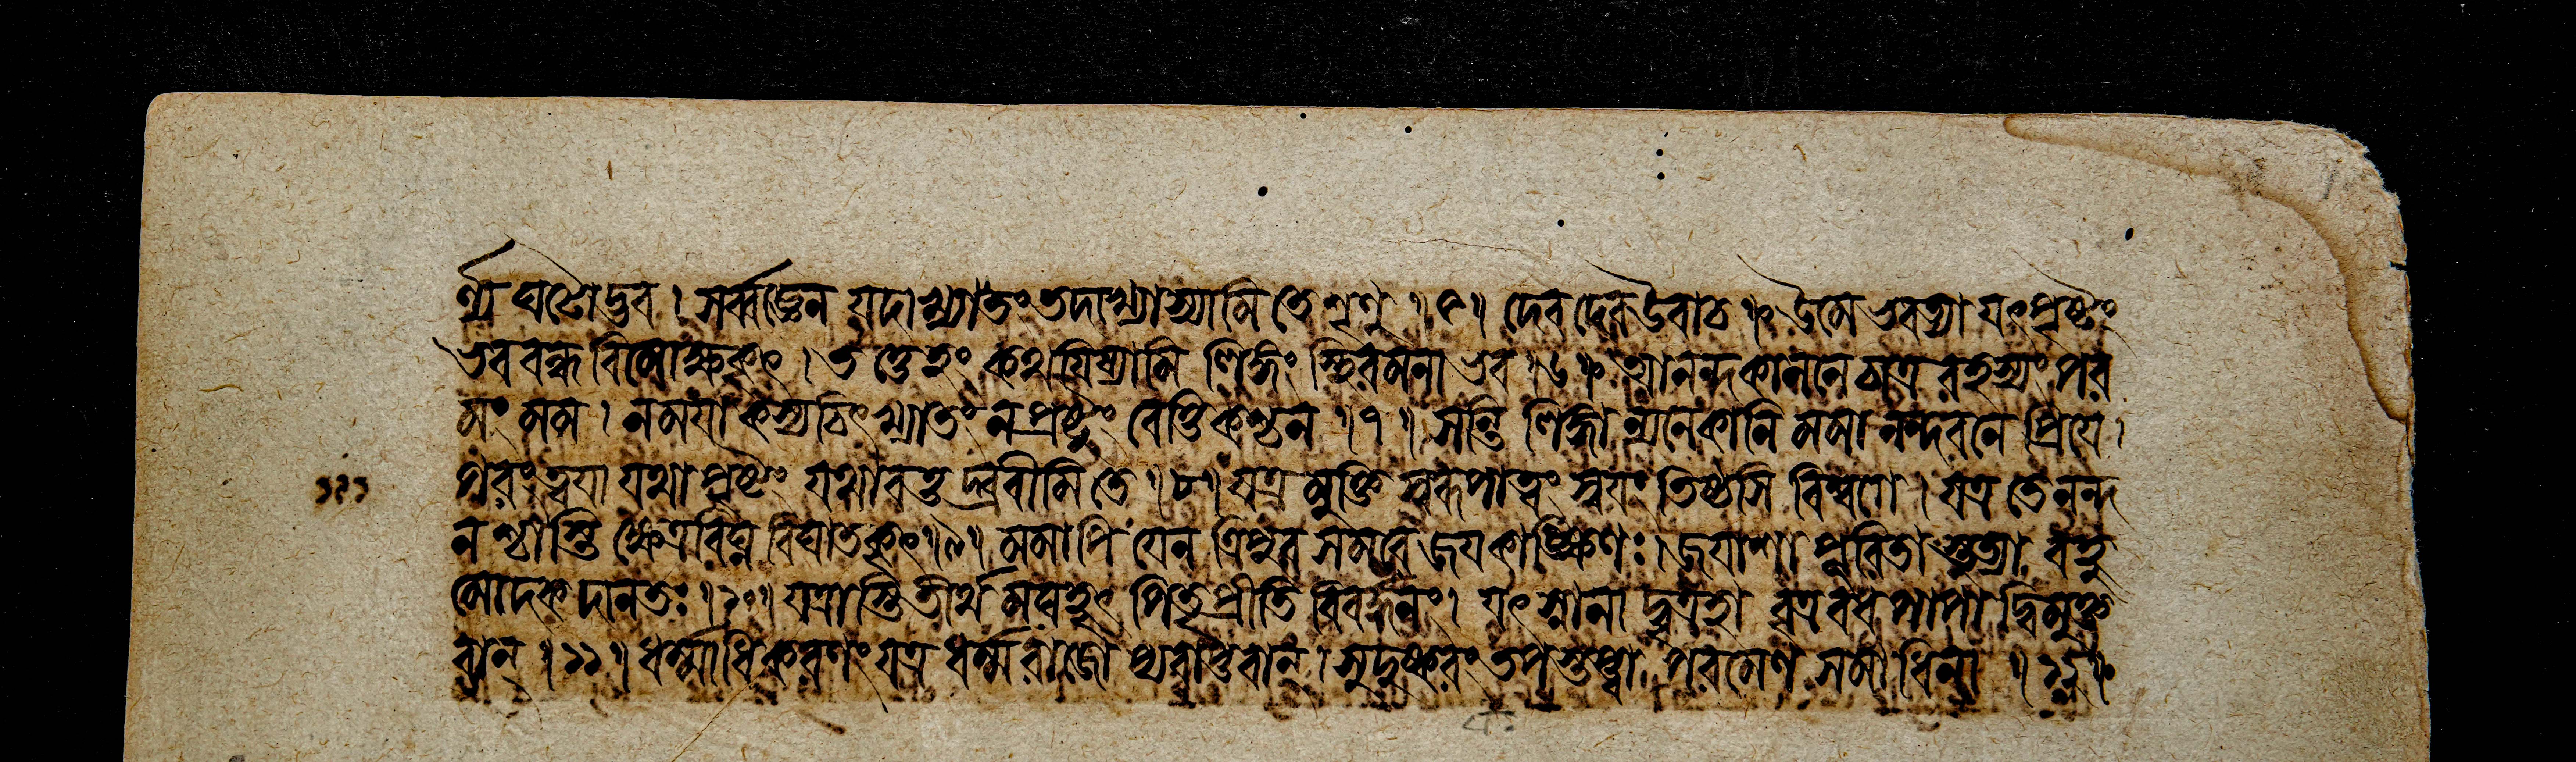 র্শ্য ঘটোদ্ভব । সর্ব্বজ্ঞেন যদাখ্যাতং তদাখ্যাস্যামি তে শৃণু ॥৫॥ দেবদেব উবাচ ॥ উমে ভবত্যা যৎপৃষ্টং
ভববন্ধবিমোক্ষকৃৎ । তত্তেহং কথয়িষ্যামি লিঙ্গং স্থিরমনা ভব ॥৬॥ আনন্দকাননে চাত্র রহস্যং পর
মং মম । ন ময়া কস্যচিৎখ্যাতং ন প্রষ্টুং বেত্তি কশ্চন ॥৭॥ সন্তি লিঙ্গান্যনেকানি মমানন্দবনে প্রিয়ে ।
পরং ত্বয়া যথা পৃষ্টং যথাবত্তদ্ব্রবীমি তে ॥৮॥ যত্র মুক্তিস্বরূপা ত্বং স্বয়ং তিষ্ঠসি বিশ্বগে । যত্র তে নন্দ
নশ্চাস্তি ক্ষেত্রবিঘ্নবিঘাতকৃৎ ॥৯॥ মমাপি যেন ত্রিপুরসমরে জয়কাঙ্ক্ষিণঃ । জয়াশা পূরিতা স্তুত্যা বহু
মোদকদানতঃ ॥১০॥ যত্রাস্তি তীর্থমঘহৃৎ পিতৃপ্রীতিবিবর্দ্ধনং । যৎস্নানাদ্বৃত্রহা বৃত্রবধপাপাদ্বিমুক্ত
বান্ ॥১১॥ ধর্ম্মাধিকরণং যত্র ধর্ম্মরাজোপ্যবাপ্তবান্ । সুদুষ্করং তপস্তপ্ত্বা পরমেণ সমাধিনা ॥১২॥